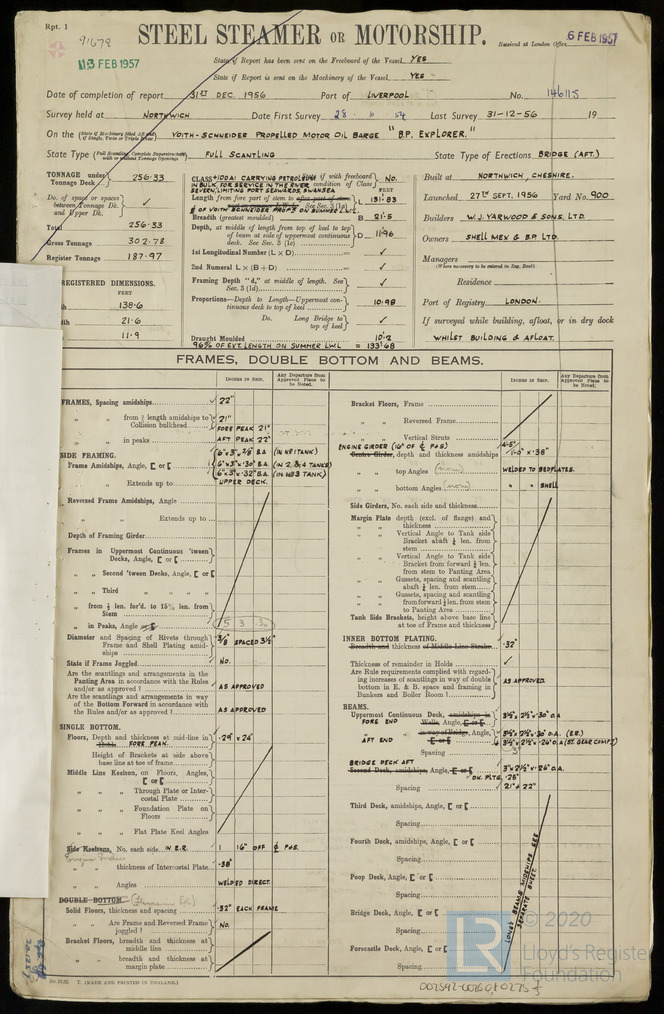 Rpt. 1
91679
STEEL STEAMER OR MOTORSHIP.
Received at London Office 6 FEB 1957
13 FEB 1957
State if Report has been sent on the Freeboard of the Vessel YES
State if Report is sent on the Machinery of the Vessel YES
Date of completion of report 31ST DEC. 1956 Port of LIVERPOOL No. 146115
Survey held at NORTHWICH Date First Survey Last Survey 31-12-56 19
On the VOITH-SCHNEIDER PROPELLED MOTOR OIL BARGE "B.P. EXPLORER."
State Type FULL SCANTLING State Type of Erections BRIDGE (AFT.)
TONNAGE under Tonnage Deck 256.33
No. of space or spaces between Tonnage Dk. and Upper Dk. ✓
Total 256.33
Gross Tonnage 302.78
Register Tonnage 187.97
REGISTERED DIMENSIONS.
FEET
138.6
21.6
11.9
CLASS +100A1 CARRYING PETROLEUM if with freeboard condition of Class No.
IN BULK, FOR SERVICE IN THE RIVER
SEVERN, LIMITING PORTS SWANSEA
FEET
L 131.83
Breadth (greatest moulded) B 21.5
Depth, at middle of length from top of keel to top of beam at side of uppermost continuous deck. See Sec. 3 (1c) D 11.96
1st Longitudinal Number (L × D) ✓
2nd Numeral L × (B + D) ✓
Framing Depth "d," at middle of length. See Sec. 3 (1d) ✓
Proportions—Depth to Length—Uppermost continuous deck to top of keel 10.98
Do. Long Bridge to top of keel ✓
Draught Moulded 10.2
96% OF EXT. LENGTH ON SUMMER LWL = 133.68
Built at NORTHWICH, CHESHIRE.
Launched 27TH SEPT. 1956 Yard No. 900
Builders W.J. YARWOOD & SONS, LTD.
Owners SHELL MEX & B.P. LTD.
Managers
(Where necessary to be entered in Reg. Book)
Residence
Port of Registry LONDON.
If surveyed while building, afloat, or in dry dock
WHILST BUILDING & AFLOAT.
FRAMES, DOUBLE BOTTOM AND BEAMS.
INCHES IN SHIP.
Any Departure from Approved Plans to be Noted.
INCHES IN SHIP.
Any Departure from Approved Plans to be Noted.
FRAMES, Spacing amidships 22"
" " from ⅗ length amidships to Collision bulkhead 21"
" " in peaks FORE PEAK 21" AFT PEAK 22"
SIDE FRAMING.
Frame Amidships, Angle, [ or [ 6"×3"×3/8" B.A. (IN No1 TANK)
6"×3"×.30" B.A. (IN 2, 3, 4 TANKS)
6"×3"×.32" B.A. (IN No3 TANK)
" " Extends up to UPPER DECK.
Reversed Frame Amidships, Angle
" " Extends up to
Depth of Framing Girder
Frames in Uppermost Continuous 'tween Decks, Angle, [ or [
" " Second 'tween Decks, Angle, [ or [
" " Third " " "
" " from ⅕ len. for'd. to 15% len. from Stem
" " in Peaks, Angle
Diameter and Spacing of Rivets through Frame and Shell Plating amidships 3/8 SPACED 3½"
State if Frame Joggled NO.
Are the scantlings and arrangements in the Panting Area in accordance with the Rules and/or as approved? AS APPROVED
Are the scantlings and arrangements in way of the Bottom Forward in accordance with the Rules and/or as approved? AS APPROVED
SINGLE BOTTOM.
Floors, Depth and thickness at mid-line in FORE PEAK. .29" × 24"
Height of Brackets at side above base line at toe of frame
Middle Line Keelson, on Floors, Angles, [ or [
" " Through Plate or Intercostal Plate
" " Foundation Plate on Floors
" " Flat Plate Keel Angles
Side Keelsons, No. each side IN E.R. 1 16" OFF ℄ P&S.
" " thickness of Intercostal Plate .38"
" " Angles WELDED DIRECT.
DOUBLE BOTTOM
Solid Floors, thickness and spacing .32" EACH FRAME
" " Are Frame and Reversed Frame joggled? NO.
Bracket Floors, breadth and thickness at middle line
" " breadth and thickness at margin plate
T. (MADE AND PRINTED IN ENGLAND.)
Bracket Floors, Frame
" " Reversed Frame
" " Vertical Struts
ENGINE GIRDER (16" OF ℄ P&S)
Centre Girder, depth and thickness amidships 1'-0" × .38"
" " top Angles (none) WELDED TO BEDPLATES.
" " bottom Angles (none) " " SHELL
Side Girders, No. each side and thickness
Margin Plate depth (excl. of flange) and thickness
" " Vertical Angle to Tank side Bracket abaft ¼ len. from stem
" " Vertical Angle to Tank side Bracket from forward ¼ len. from stem to Panting Area
" " Gussets, spacing and scantling abaft ¼ len. from stem
" " Gussets, spacing and scantling from forward ¼ len. from stem to Panting Area
Tank Side Brackets, height above base line at toe of Frame and thickness
INNER BOTTOM PLATING.
Breadth and thickness of Middle Line Strake .32"
Thickness of remainder in Holds ✓
Are Rule requirements complied with regarding increases of scantlings in way of double bottom in E. & B. space and framing in Bunkers and Boiler Room? AS APPROVED.
BEAMS.
Uppermost Continuous Deck, amidships
FORE END 3½"×2½"×.30" O.A
AFT END 3½"×2½"×.30" O.A. (E.R.)
3½"×2½"×.26" O.A (ST. GEAR COMPT)
Spacing
BRIDGE DECK AFT
Second Deck, amidships, Angle, [ or [ 3"×2½"×.26" O.A.
DK. PLTG. .25"
Spacing 21" & 22"
Third Deck, amidships, Angle, [ or [
Spacing
Fourth Deck, amidships, Angle, [ or [
Spacing
Poop Deck, Angle, [ or [
Spacing
Bridge Deck, Angle, [ or [
Spacing
Forecastle Deck, Angle, [ or [
Spacing
LONGL BEAMS MIDSHIPS SEE SEPARATE SHEET.
© 2020
LR
Lloyd's Register
Foundation